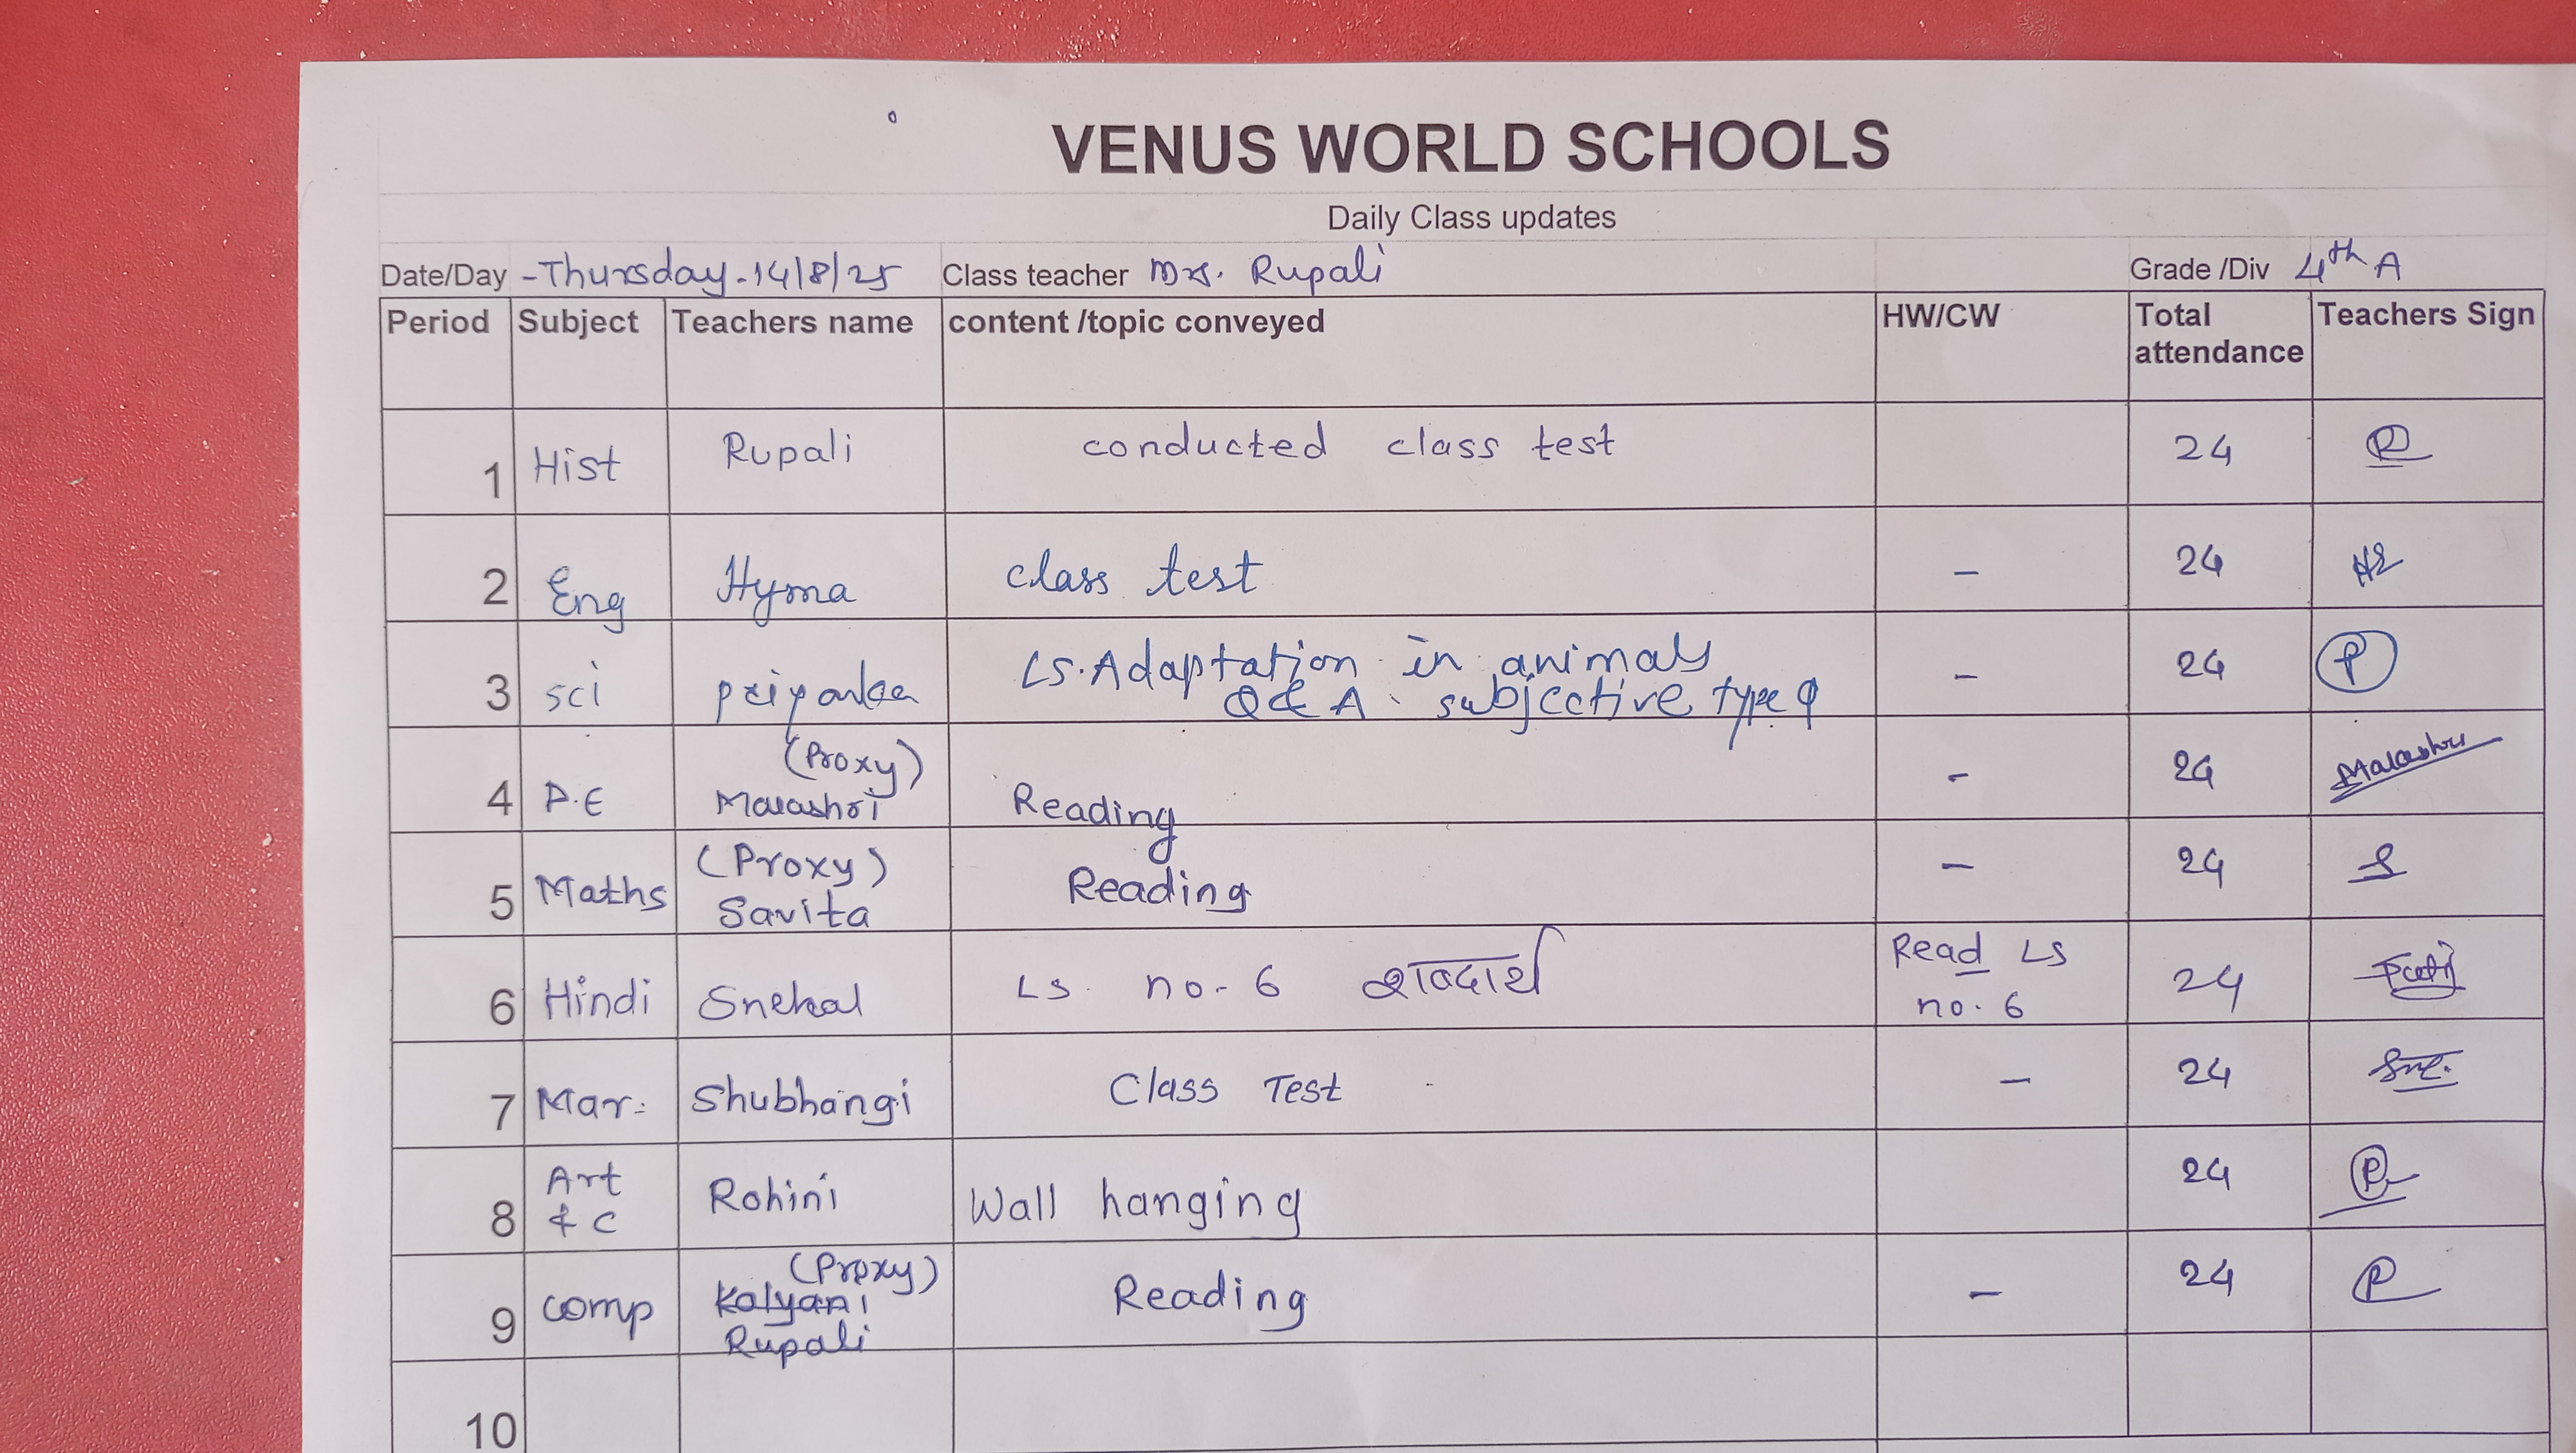 VENUS WORLD SCHOOLS
Daily Class updates
Date/Day - Thursday - 14/8/25 Class teacher Mrs. Rupali Grade /Div 4th A
Period Subject Teachers name content /topic conveyed HW/CW Total attendance Teachers Sign
1 Hist Rupali conducted class test 24
2 Eng Hyma class test - 24
3 sci priyanka LS. Adaptation in animals
Q & A. subjective type Q - 24
(Proxy)
4 P.E Malashri Reading - 24 Malashri
(Proxy)
5 Maths Savita Reading - 24
6 Hindi Snehal Ls. no. 6 शब्दार्थ Read Ls
no. 6 24
7 Mar. Shubhangi Class Test - 24
8 Art
& C Rohini Wall hanging 24
(Proxy)
9 comp Kalyani
Rupali Reading - 24
10